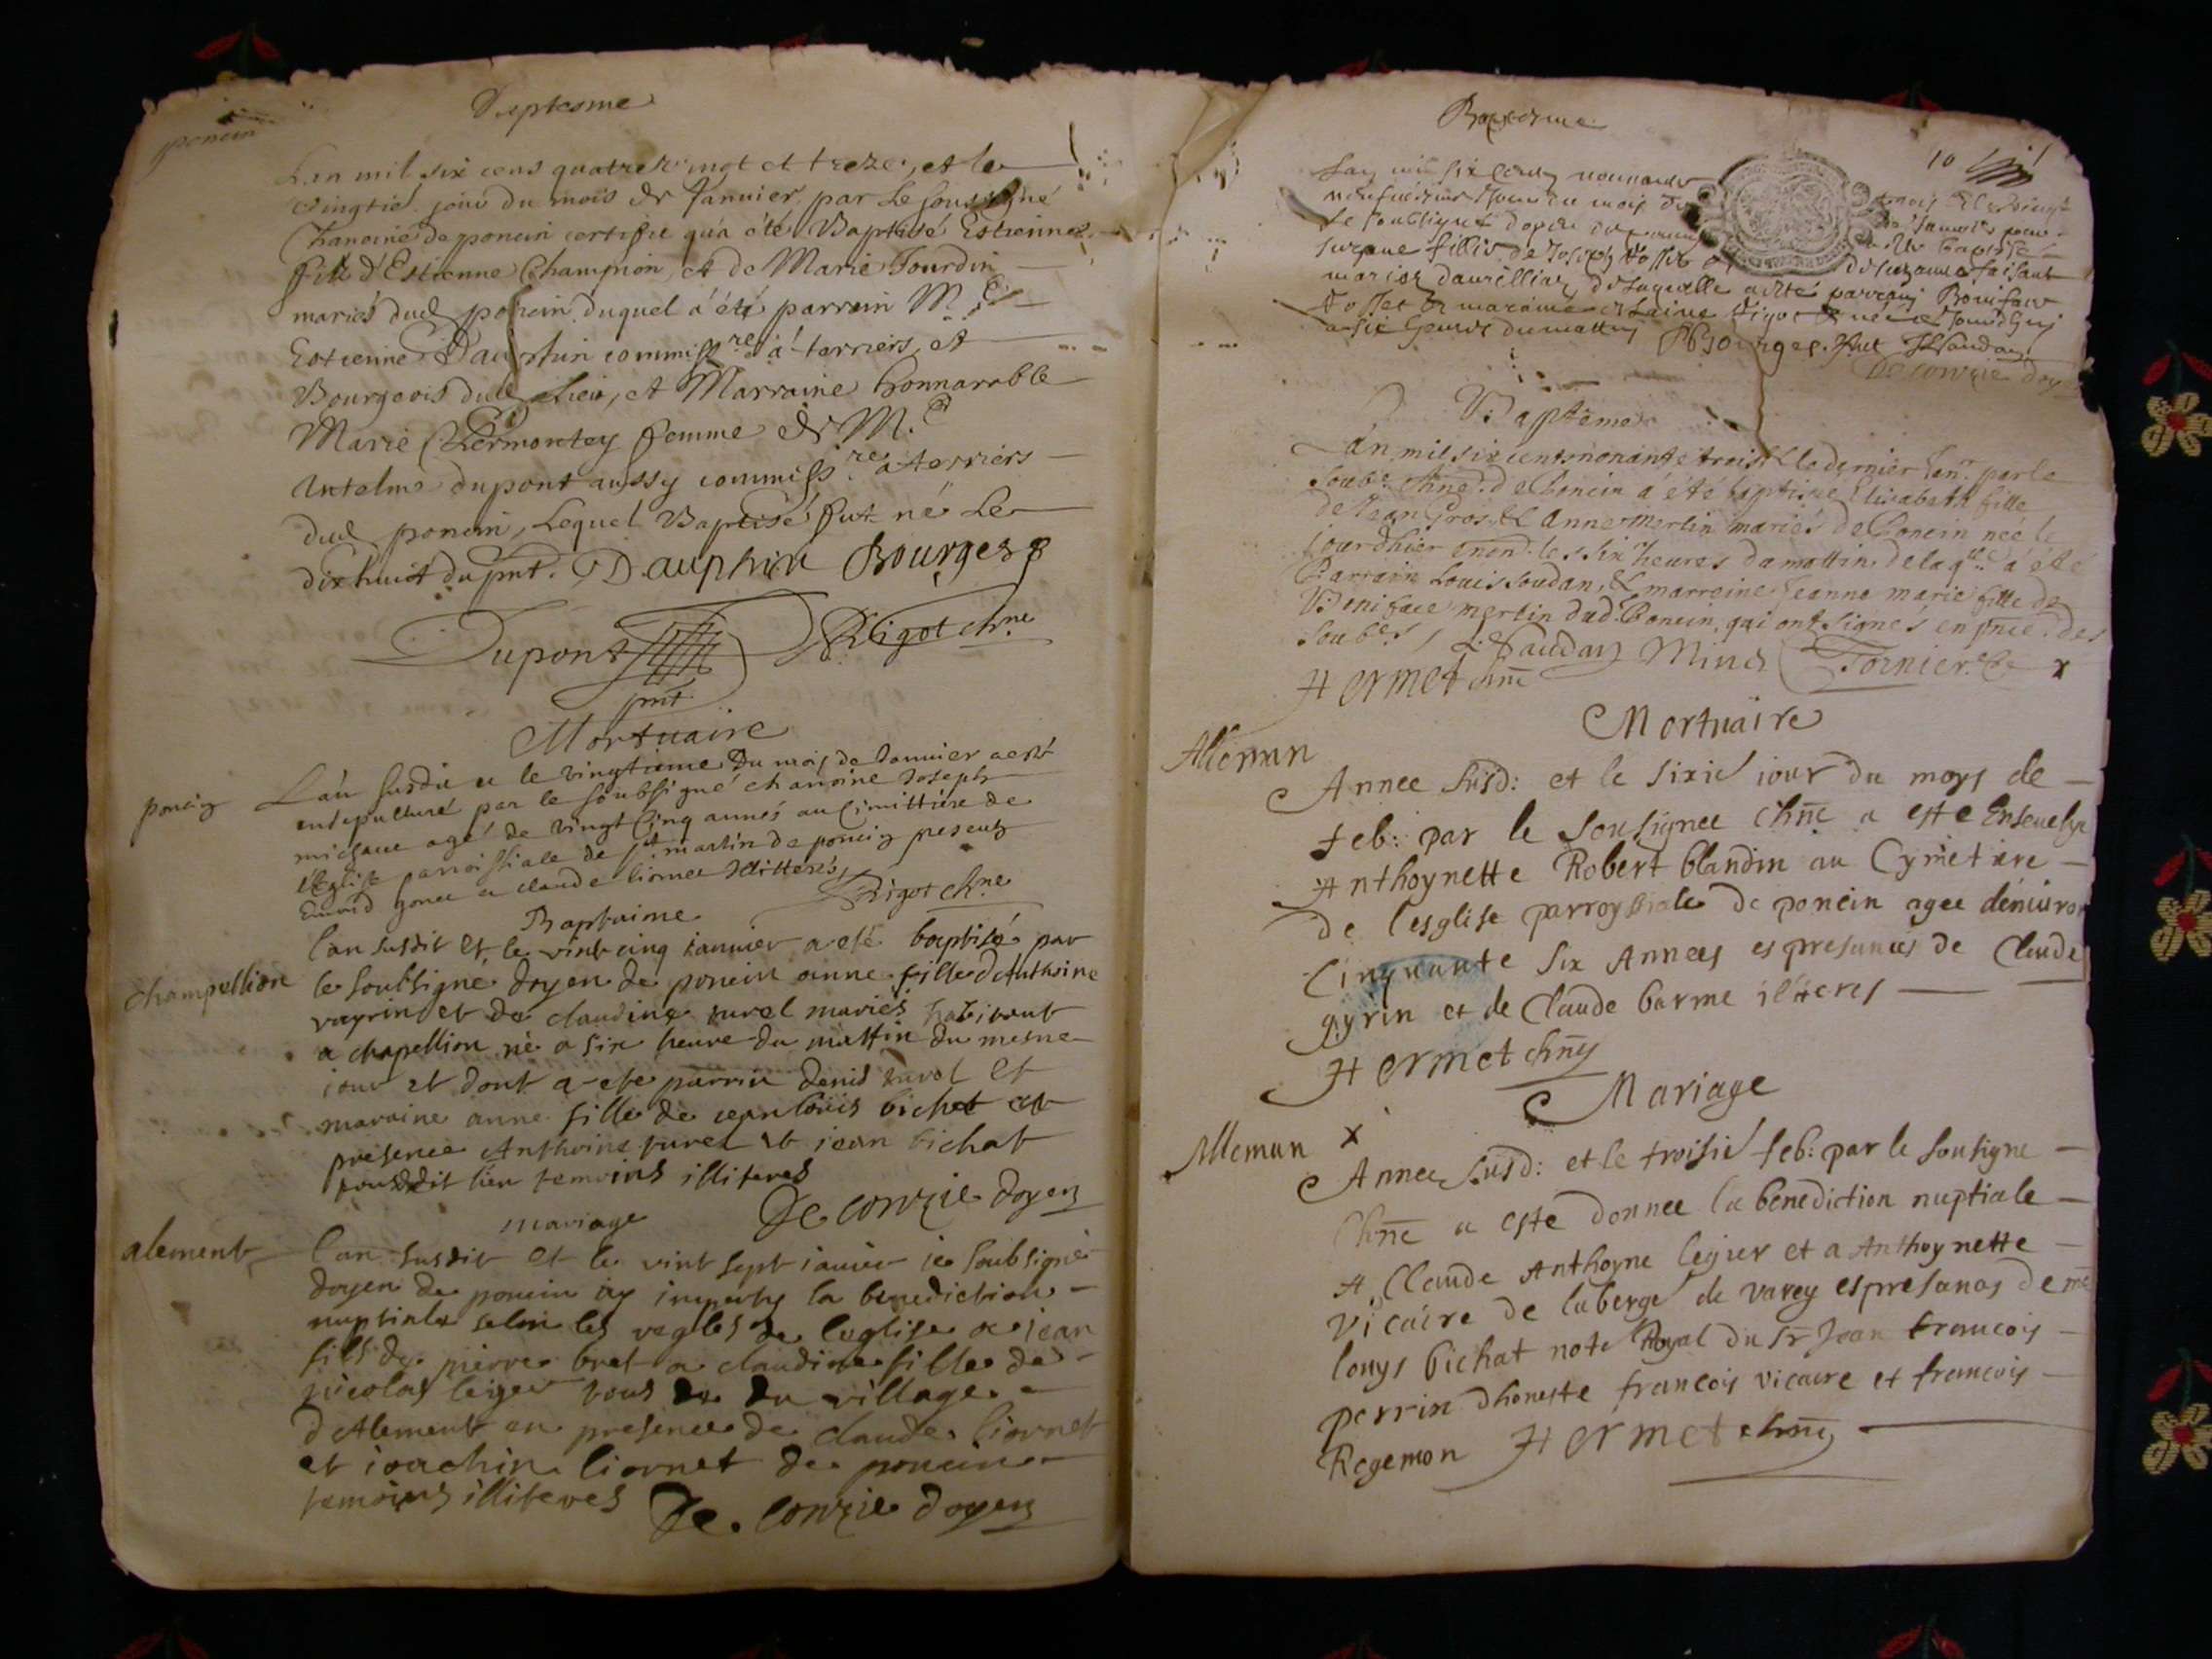 poncin
Baptesme
L'an mil six cens quatre vingt et treze, et le
vingtie jour du mois de Janvier par Le soussigné
Chanoine de poncin certifie qu'a été Baptisé Estienne
fils d'Estienne Champion, et de Marie Jourdin
mariés dud poncin duquel á été parrain M.e
Estienne Dauphin commissre á terriers, et
Bourgeois dud Lieu, et Marraine honnorable
Marie Clermontey femme de M.e
Antelme dupont aussy commissre á terriers
dud poncin, Lequel Baptisé fut né Le
dixhuict du pnt. Dauphin Bourges p
Dupont Rigot chne
pnt
Mortuaire
poncin
L'an susdit et le vingtieme du mois de Janvier a esté
ensepulturé par le soubsigné chanoine Joseph
michaue agé de vingt cinq annés au Cimittiere de
l'Eglise parroissiale de st martin de poncin presentz
et claude liornet Illitterés
Rigot chne
Baptaime
champellion
l'an susdit et le vint cinq iannier a esté baptisé par
le soubsigné doyen de poncin anne fille d'Anthoine
vayrin et de claudine turel mariés habitant
a chapellion né a six heure du mattin du mesme
iour et dont a ete parrin denis turol et
maraine anne fille de iean louis bichat et
presence Anthoine turel et iean bichat
tous dudit lieu temoins illiteres
De conzie doyen
mariage
alement
l'an susdit et le vint sept ianier ie soubsigné
doyen de poncin ay imparty la benediction
nuptiale selon les regles de l'eglise a iean
fils de pierre bret a claudine fille de
nicolas leger tous de du village
d'Alement en presence de claude liornet
et ioachin liornet de poncin
temoins illiteres De conzie doyen
Baptesme
10
L'an mil six cens nonante trois et le vingt
neufuiesme Jour du mois de Janvier par
le soubsigné doyen de poncin a esté baptisé
suzanne fillie de Joseph tosset
mariez daurillias de laquelle a esté parrain Boniface
tosset & maraine
a six heures du mattin Bourges. J Soudan
De conzie doy
Baptême
L'an mil six cent nonante trois & le dernier Janr. par le
Soubs. Chne. de Poncin á été baptisée Elisabeth fille
de Jean Gros, & Anne Merlin mariés de Poncin née le
jour d'hier les six heures du mattin de laqlle. á été
Parrain Louis Soudan, & marreine Jeanne marie fille de
Boniface Merlin dud. Poncin, qui ont signés en pnce. des
Soubsés, L. Saudan Mind Tornier
Hermet chne x
Mortuaire
Allemun
Annee Susd: et le sixie iour du moys de
feb: par le Sousignee Chne a este Enseuelye
Anthoynette Robert blandin au Cymetiere
de l'esglise parroyssiale de poncin agee denuiron
Cinquante Six Annees es presances de Claude
gyrin et de Claude barme illteres
Hermet chne
Mariage
Allemun x
Annee Susd: et le troisie feb: par le Sousigne
Chne a este donnee la benediction nuptiale
A Claude Anthoyne legier et a Anthoynette
vicaire de laberge de varey es presances de me
louys bichat note Royal du sr Jean francois
perrin dhoneste francois vicaire et francois
Rogemon Hermet chne